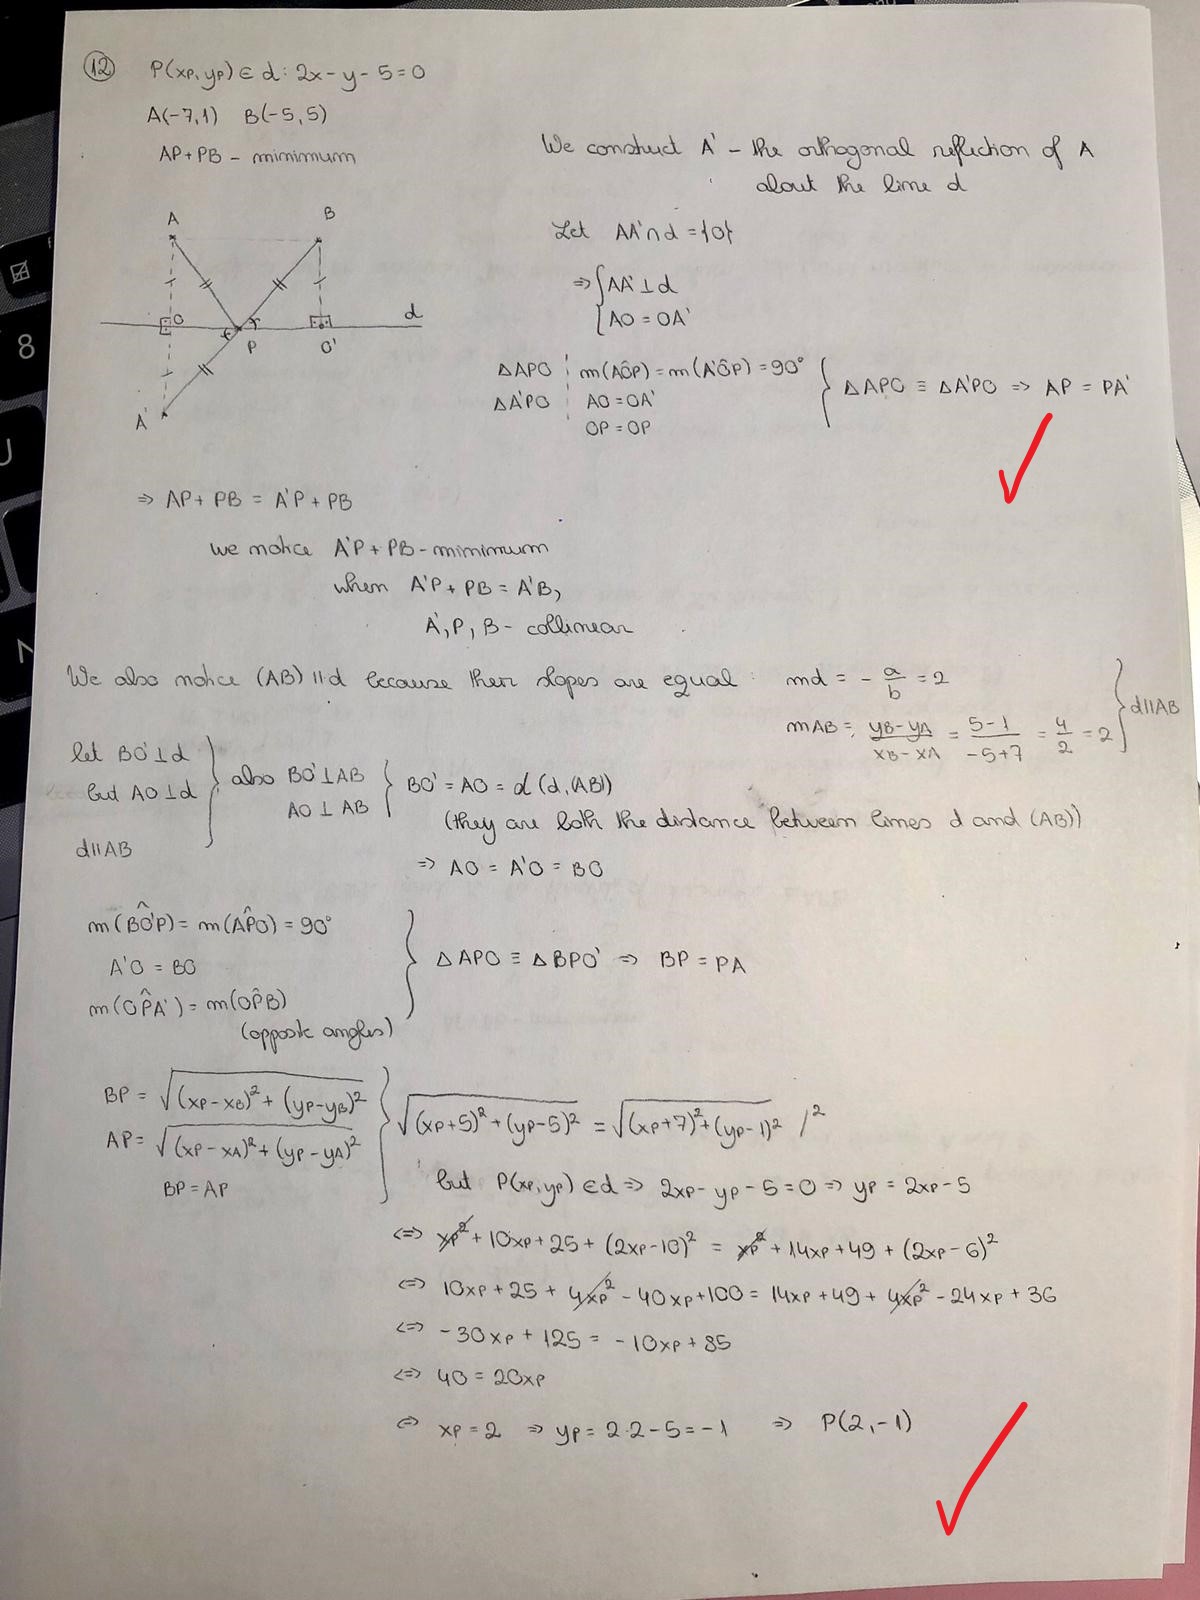 12 P(xp, yp) ∈ d: 2x - y - 5 = 0
A(-7,1) B(-5,5)
AP + PB - minimum
We construct A' - the orthogonal reflection of A
about the line d
Let AA' ∩ d = {O}
⇒ { AA' ⊥ d
AO = OA'
A
B
O
P
O'
d
A'
ΔAPO | m(AÔP) = m(A'ÔP) = 90°
ΔA'PO | AO = OA'
OP = OP
} ΔAPO ≡ ΔA'PO ⇒ AP = PA'
⇒ AP + PB = A'P + PB
we notice A'P + PB - minimum
when A'P + PB = A'B,
A', P, B - collinear
We also notice (AB) || d because their slopes are equal: md = - a/b = 2
mAB = (yB - yA)/(xB - xA) = (5-1)/(-5+7) = 4/2 = 2 } d||AB
let BO' ⊥ d
but AO ⊥ d
d||AB
} also BO' ⊥ AB
AO ⊥ AB
} BO' = AO = d(d, (AB))
(they are both the distance between lines d and (AB))
⇒ AO = A'O = BO
m(BÔ'P) = m(AP̂O) = 90°
A'O = BO
m(OP̂A') = m(OP̂B)
(opposite angles)
} ΔAPO ≡ ΔBPO' ⇒ BP = PA
BP = √((xp - xB)² + (yp - yB)²)
AP = √((xp - xA)² + (yp - yA)²)
BP = AP
} √((xp+5)² + (yp-5)²) = √((xp+7)² + (yp-1)²) /²
but P(xp, yp) ∈ d ⇒ 2xp - yp - 5 = 0 ⇒ yp = 2xp - 5
⇔ xp² + 10xp + 25 + (2xp - 10)² = xp² + 14xp + 49 + (2xp - 6)²
⇔ 10xp + 25 + 4xp² - 40xp + 100 = 14xp + 49 + 4xp² - 24xp + 36
⇔ -30xp + 125 = -10xp + 85
⇔ 40 = 20xp
⇔ xp = 2 ⇒ yp = 2·2 - 5 = -1 ⇒ P(2,-1)
8